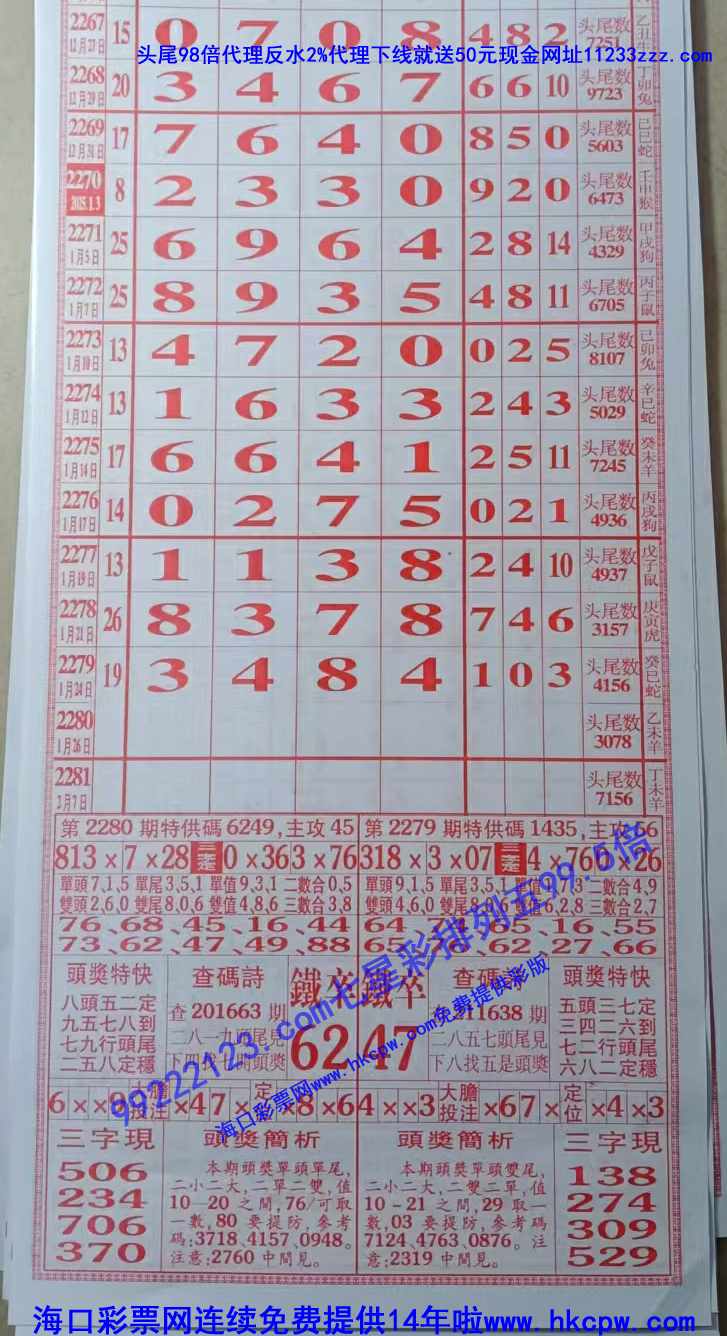 2267 15 0 7 0 8 4 8 2 头尾数 乙丑牛
12月27日 7251
头尾98倍代理反水2%代理下线就送50元现金网址11233zzz.com
2268 20 3 4 6 7 6 6 10 头尾数 丁卯兔
12月29日 9723
2269 17 7 6 4 0 8 5 0 头尾数 己巳蛇
12月31日 5603
2270 8 2 3 3 0 9 2 0 头尾数 壬申猴
2015.1.3 6473
2271 25 6 9 6 4 2 8 14 头尾数 甲戌狗
1月5日 4329
2272 25 8 9 3 5 4 8 11 头尾数 丙子鼠
1月7日 6705
2273 13 4 7 2 0 0 2 5 头尾数 己卯兔
1月10日 8107
2274 13 1 6 3 3 2 4 3 头尾数 辛巳蛇
1月12日 5029
2275 17 6 6 4 1 2 5 11 头尾数 癸未羊
1月14日 7245
2276 14 0 2 7 5 0 2 1 头尾数 丙戌狗
1月17日 4936
2277 13 1 1 3 8 2 4 10 头尾数 戊子鼠
1月19日 4937
2278 26 8 3 7 8 7 4 6 头尾数 庚寅虎
1月21日 3157
2279 19 3 4 8 4 1 0 3 头尾数 癸巳蛇
1月24日 4156
2280 头尾数 乙未羊
1月26日 3078
2281 头尾数 丁未羊
2月7日 7156
第2280期特供碼6249,主攻45 第2279期特供碼1435,主攻66
813×7×28 0×36 3×76 318×3×07 4×76 6×26
單頭7,1,5 單尾3,5,1 單值9,3,1 二數合0,5 單頭9,1,5 單尾3,5,1 二數合4,9
雙頭2,6,0 雙尾8,0,6 雙值4,8,6 三數合3,8 雙頭4,6,0 雙值6,2,8 三數合2,7
76、68、45、16、44 64、85、16、55
73、62、47、49、88 65、76、62、27、66
頭獎特快 查碼詩 鐵卒 鐵卒 查碼詩 頭獎特快
八頭五二定 查201663期 211638期 五頭三七定
九五七八到 二八一九頭尾見 62 47 二八五七頭尾見 三四二六到
七九行頭尾 下八找五是頭獎 七二行頭尾
二五八定穩 六八二定穩
99222123.com七星彩排列五99.5倍
海口彩票网www.hkcpw.com免费提供彩版
×47× ×8×6 4××3 大膽投注 ×67× 定位 ×4×3
三字現 頭獎簡析 頭獎簡析 三字現
506 本期頭獎單頭單尾, 本期頭獎單頭雙尾, 138
234 二小二大,二單二雙,值 二小二大,二雙三單,值 274
706 10—20之間,76/可取 10－21之間,29取一 309
370 一數,80要提防,參考 數,03要提防,參考碼 529
碼:3718､4157､0948。 7124､4763､0876。注
注意:2760中間見。 意:2319中間見。
海口彩票网连续免费提供14年啦www.hkcpw.com